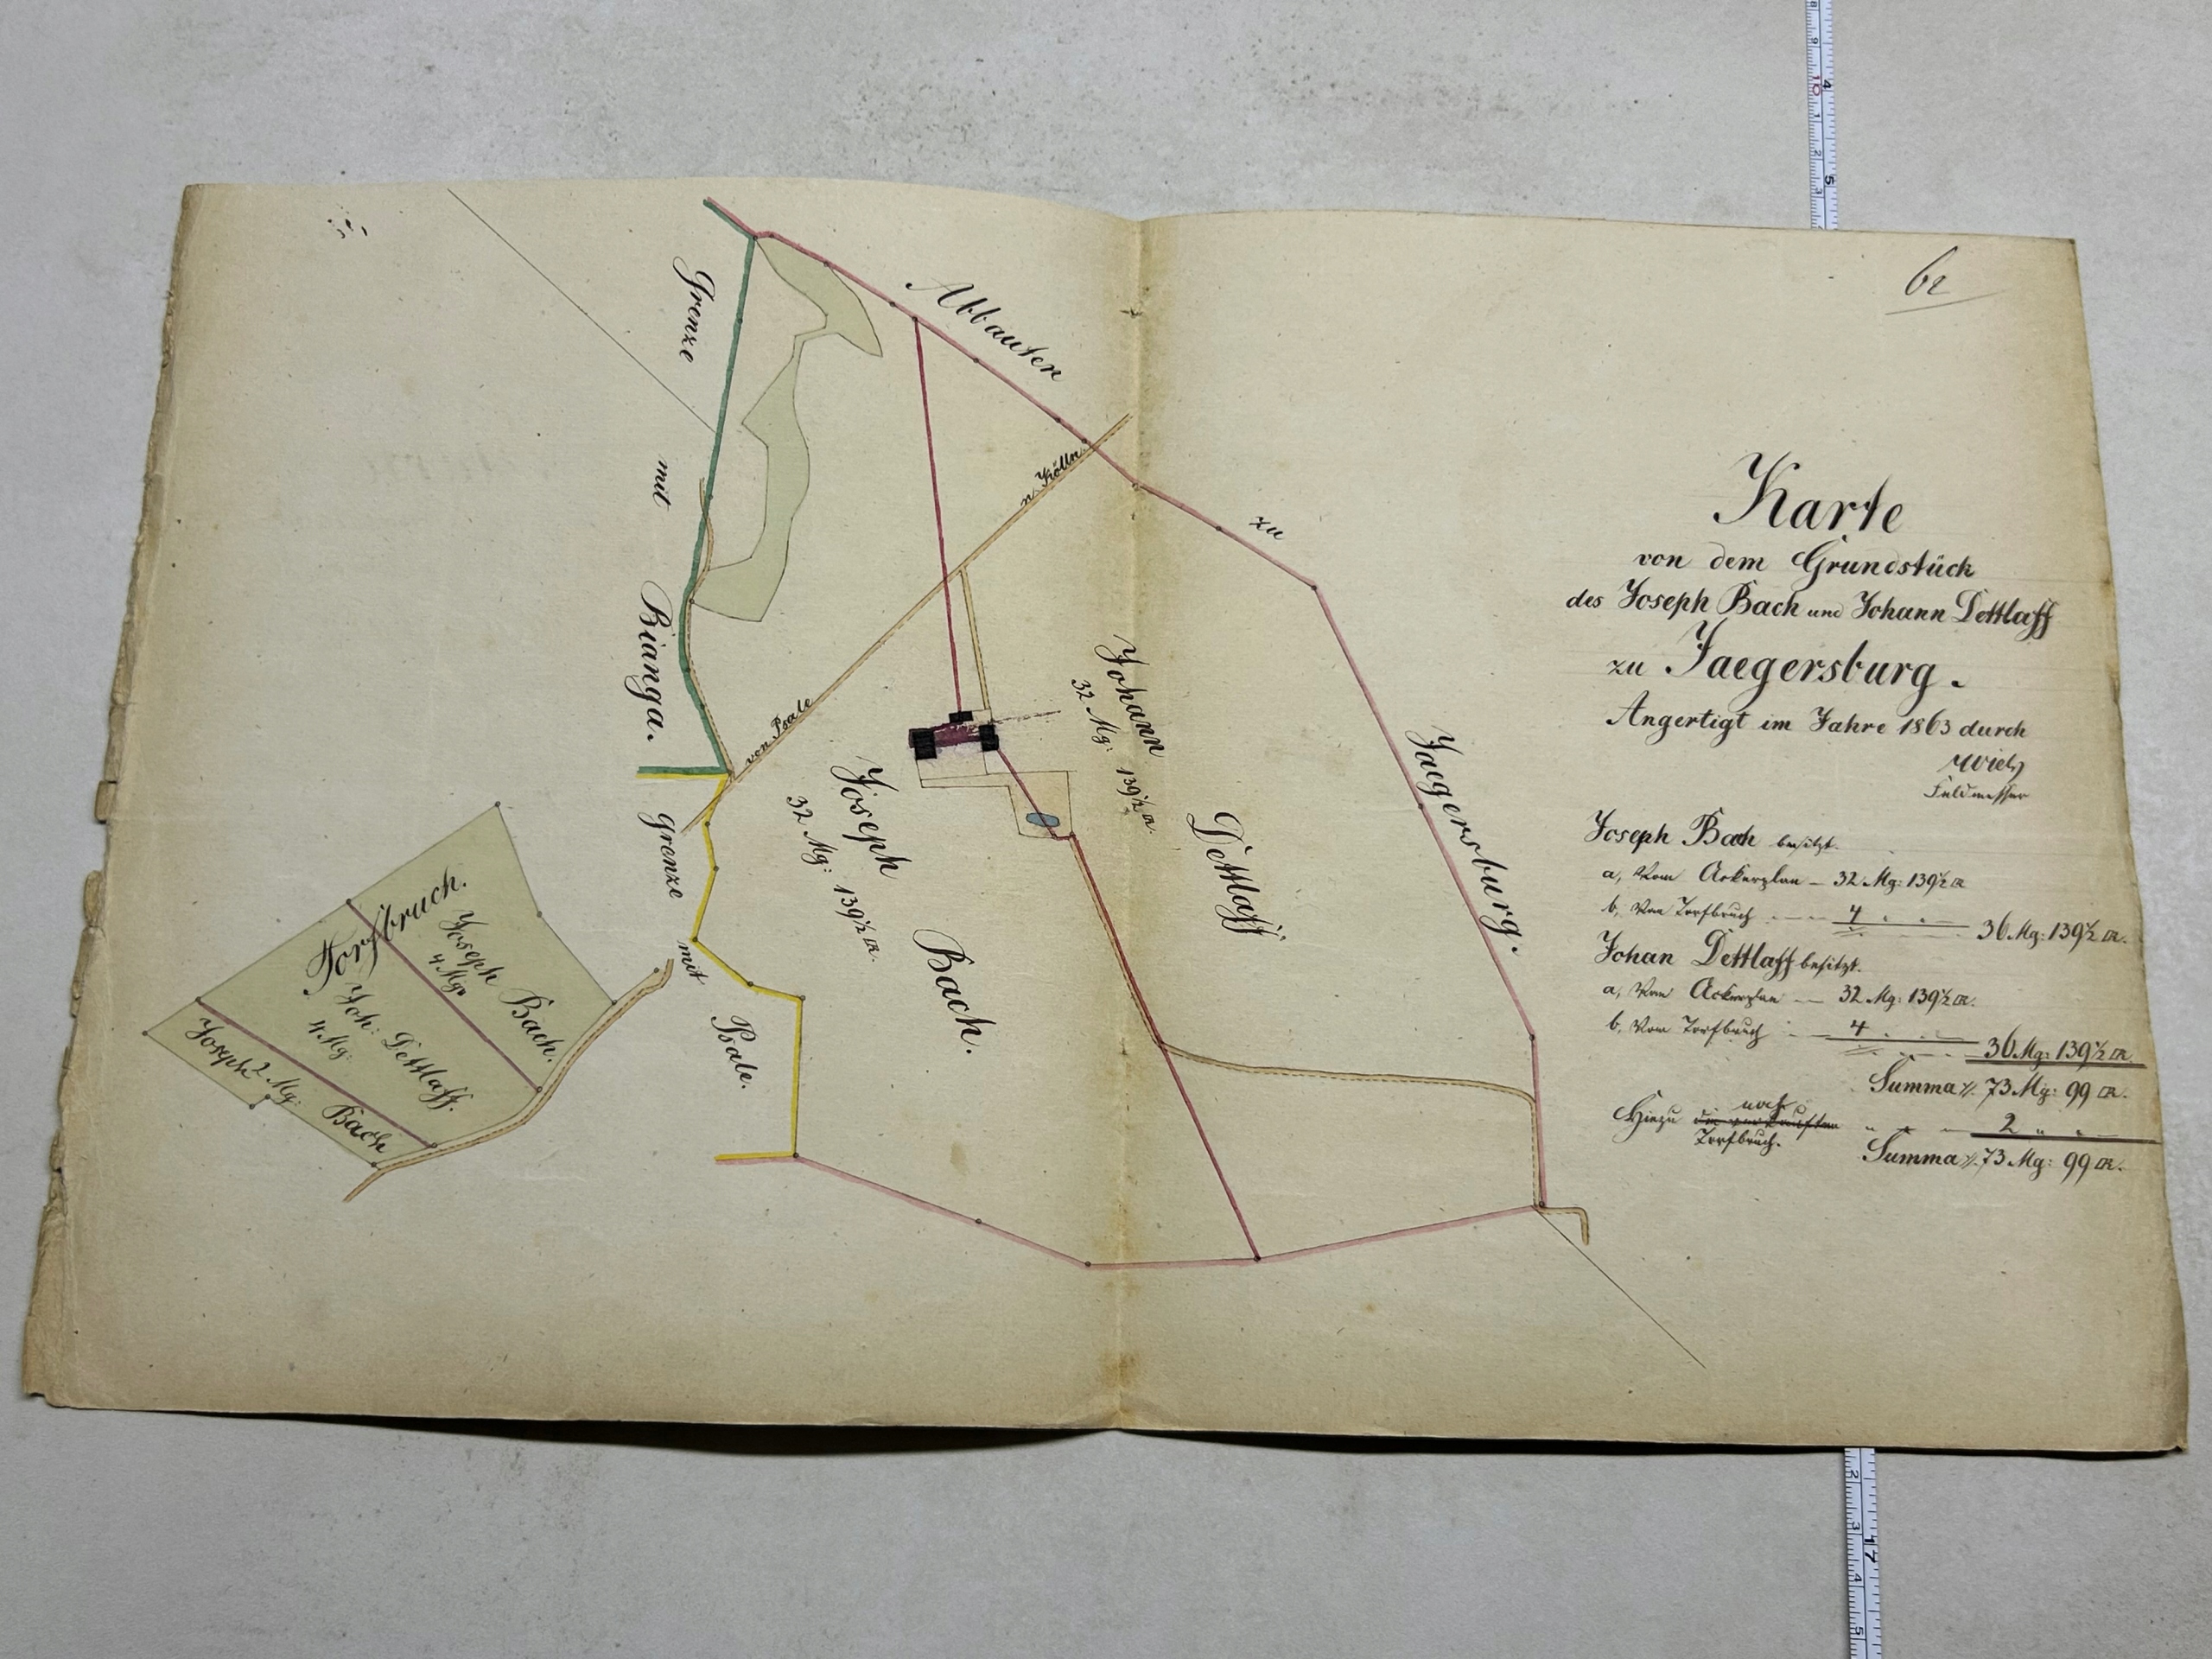 62
Karte
von dem Grundstück
des Joseph Bach und Johann Dettlaff
zu Jaegersburg.
Angertigt im Jahre 1863 durch
Feldmesser
Joseph Bach besitzt.
a, Vom Ackerplan — 32 Mg: 139½ □R
b, Von Torfbruch — 4 " " — 36 Mg: 139½ □R.
Johan Dettlaff besitzt.
a, Vom Ackerplan — 32 Mg: 139½ □R.
b, Vom Torfbruch — 4 " " — 36 Mg: 139½ □R
Summa 73 Mg: 99 □R.
Hiezu noch
Torfbruch. " " 2 " "
Summa 73 Mg: 99 □R.
Abbauten zu Jaegersburg.
Grenze mit Bianga.
n. Kölln
von Psale
Johann Dettlaff.
32 Mg: 139½ □R.
Joseph Bach.
32 Mg: 139½ □R.
grenze mit Psale.
Torfbruch.
Joseph Bach.
4 Mg.
Joh: Dettlaff.
4 Mg:
Joseph Bach
2 Mg: